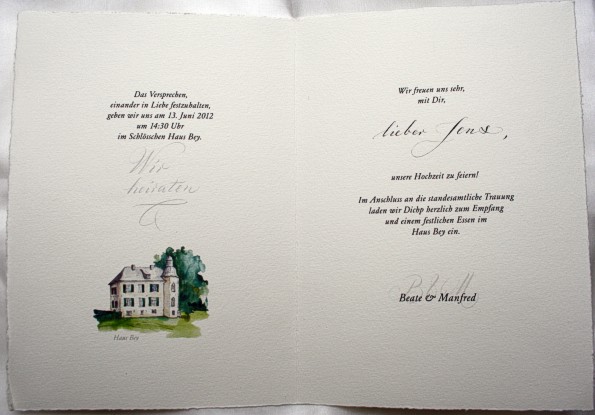 Das Versprechen,
einander in Liebe festzuhalten,
geben wir uns am 13. Juni 2012
um 14:30 Uhr
im Schlösschen Haus Bey.
Wir
heiraten
Haus Bey
Wir freuen uns sehr,
mit Dir,
lieber Jens,
unsere Hochzeit zu feiern!
Im Anschluss an die standesamtliche Trauung
laden wir Dichp herzlich zum Empfang
und einem festlichen Essen im
Haus Bey ein.
Beate & Manfred